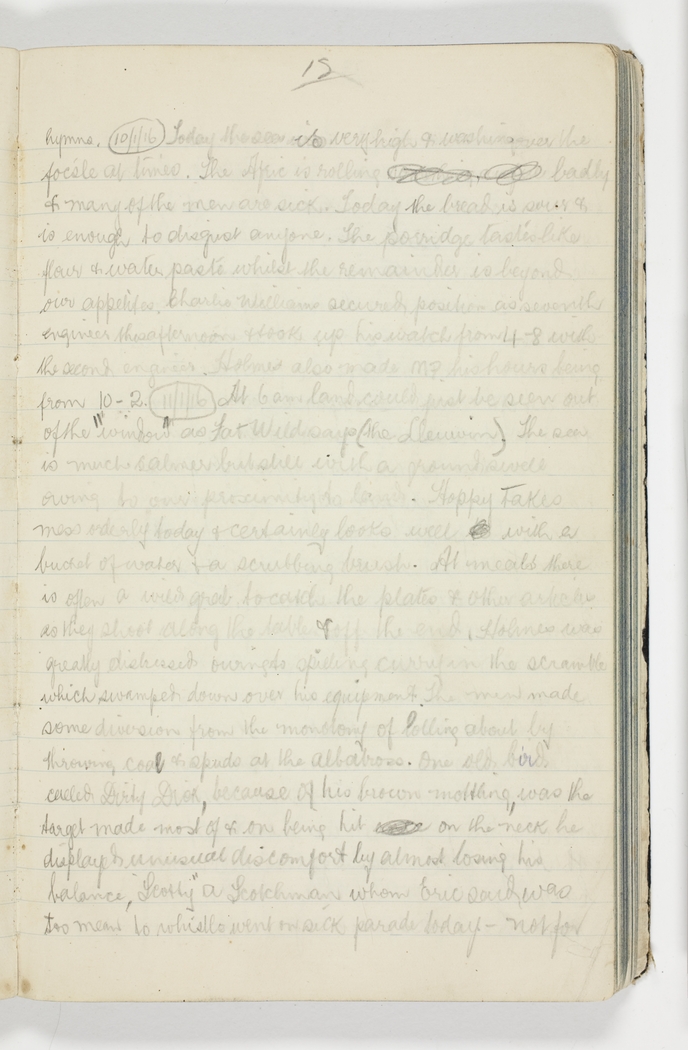 12
hymns. 10/1/16 Today the sea is very high & washing over the
focsle at times. The Afric is rolling badly
& many of the men are sick. Today the bread is sour &
is enough to disgust anyone. The porridge tastes like
flour & water paste whilst the remainder is beyond
our appetites. Charlie Williams secured position as seventh
engineer this afternoon & took up his watch from 4-8 with
the second engineer. Holmes also made his hours being
from 10-2. 11/1/16 At 6 am land could just be seen out
of the "window" as Fat Wild says (the Lleuwin). The sea
is much calmer but still with a ground swell
owing to our proximity to land. Hoppy takes
mess orderly today & certainly looks well with a
bucket of water & a scrubbing brush. At meals there
is often a wild grab to catch the plates & other articles
as they shoot along the table & off the end. Holmes was
greatly distressed owing to gliding curry in the scramble
which swamped down over his equipment. The men made
some diversion from the monotony of lolling about by
throwing coal & spuds at the albatross. One old bird
called Dirty Dick, because of his brown mottling, was the
target made most of & on being hit on the neck he
displayed unusual discomfort by almost losing his
balance, "Scotty" a Scotchman whom Eric said was
too mean to whistle went on sick parade today - not for